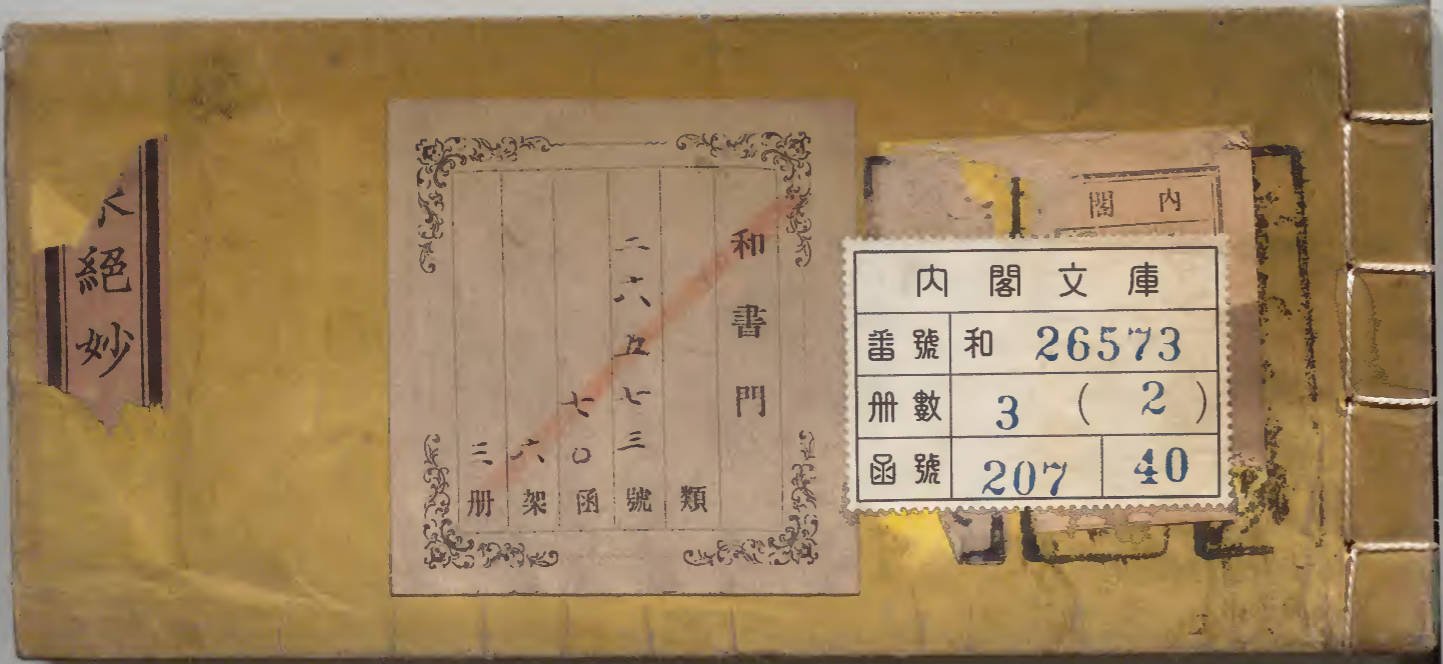 絕妙
和書門
類
二六五七三號
七〇函
六架
三册
内閣
内閣文庫
番號 和 26573
册數 3 ( 2 )
函號 207 40